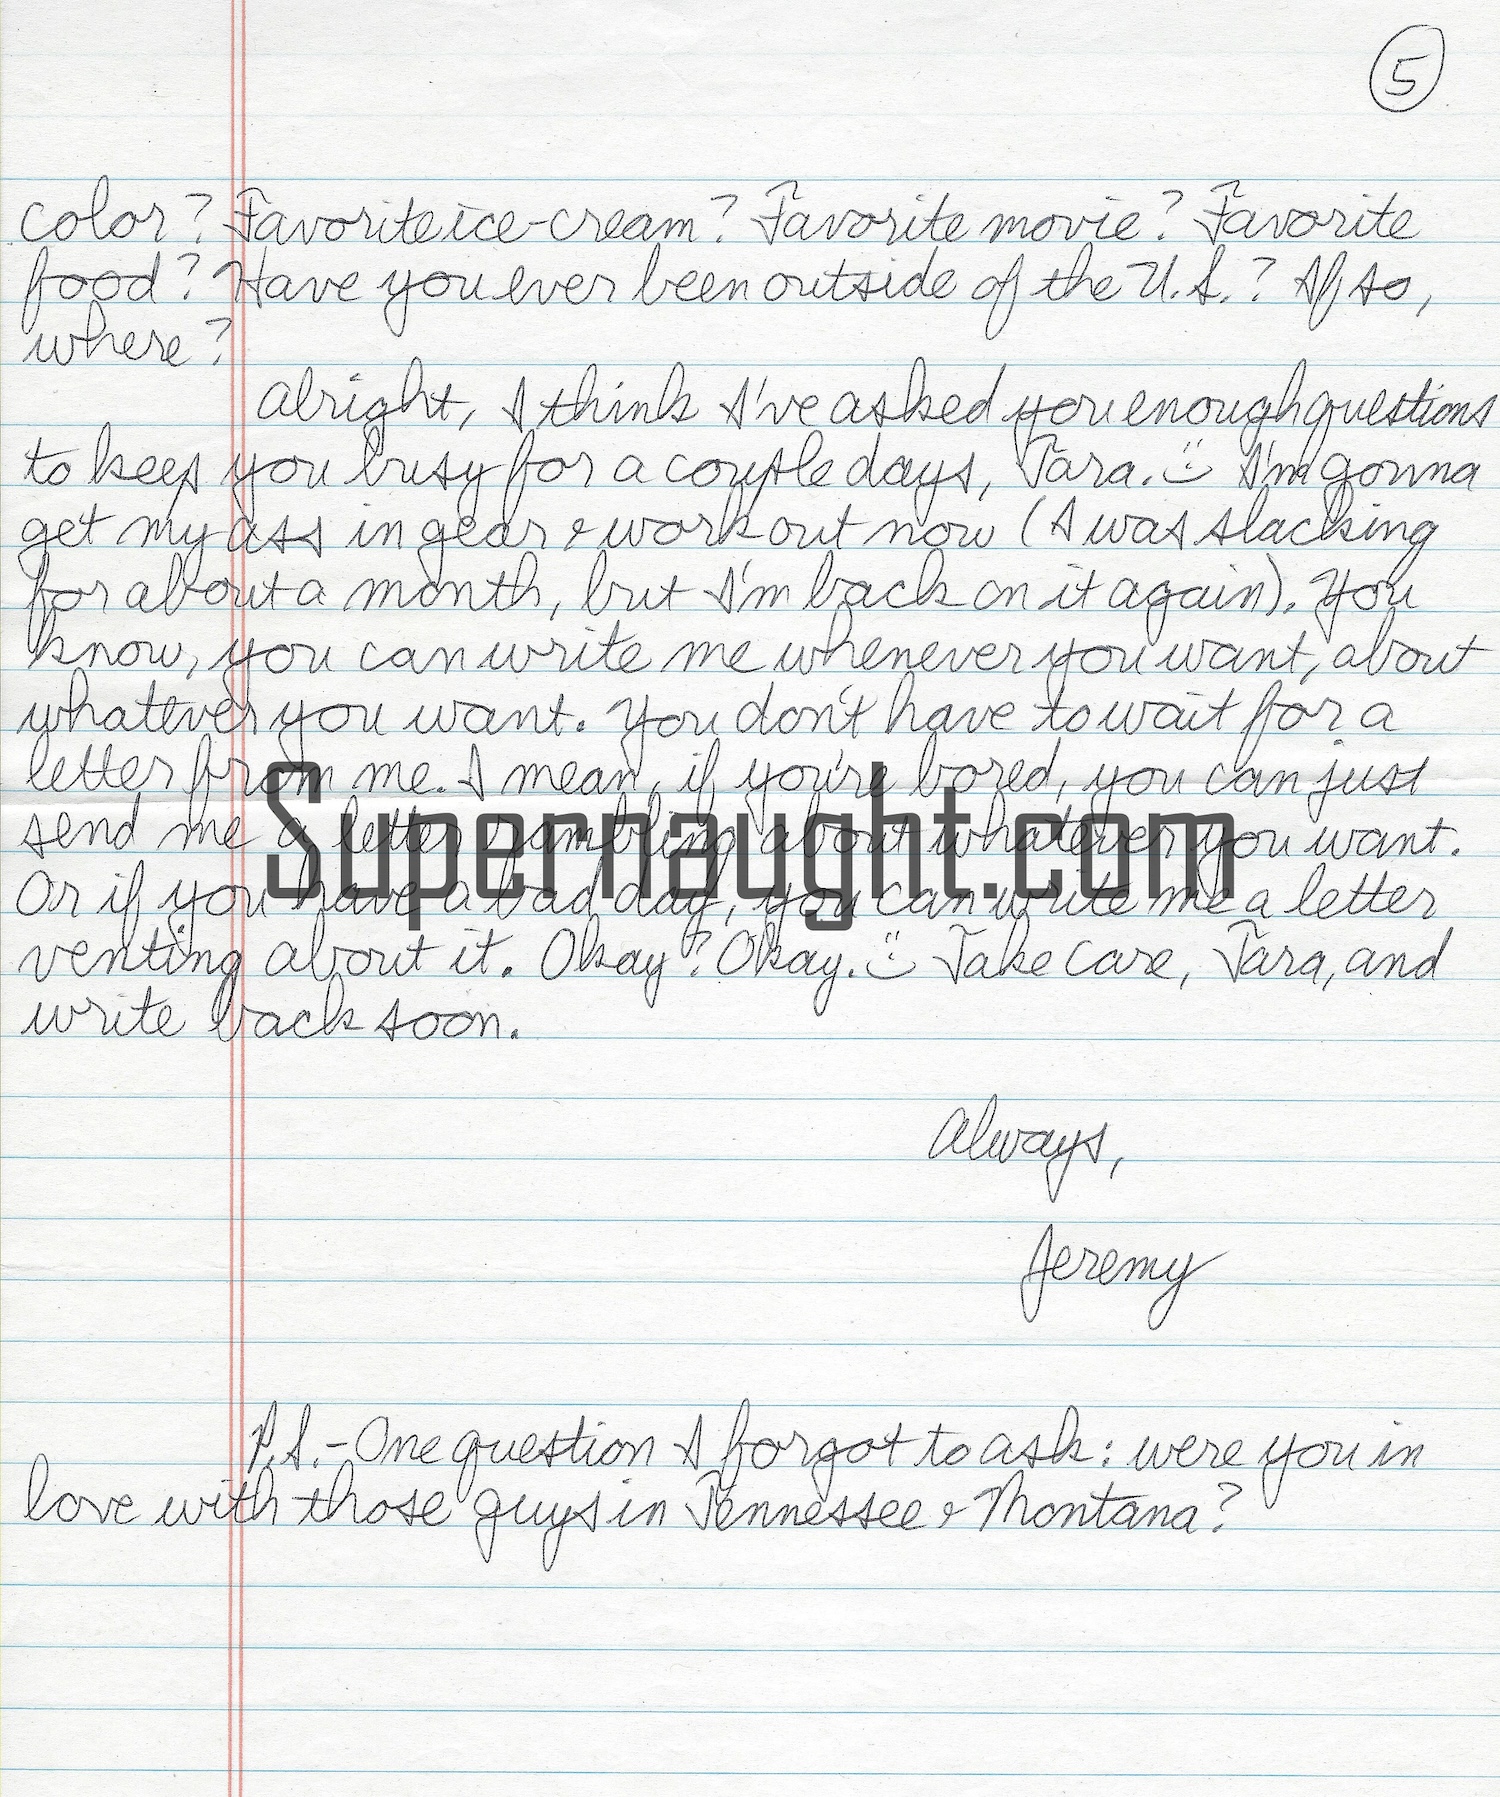 5
color? Favorite ice-cream? Favorite movie? Favorite
food? Have you ever been outside of the U.S.? If so,
where?
Alright, I think I've asked you enough questions
to keep you busy for a couple days, Tara. :) I'm gonna
get my ass in gear & work out now (I was slacking
for about a month, but I'm back on it again). You
know, you can write me whenever you want, about
whatever you want. You don't have to wait for a
letter from me. I mean, if you're bored, you can just
send me a letter rambling about whatever you want.
Supernaught.com
Or if you have a bad day, you can write me a letter
venting about it. Okay? Okay. :) Take care, Tara, and
write back soon.
Always,
Jeremy
P.S.- One question I forgot to ask: were you in
love with those guys in Tennessee & Montana?